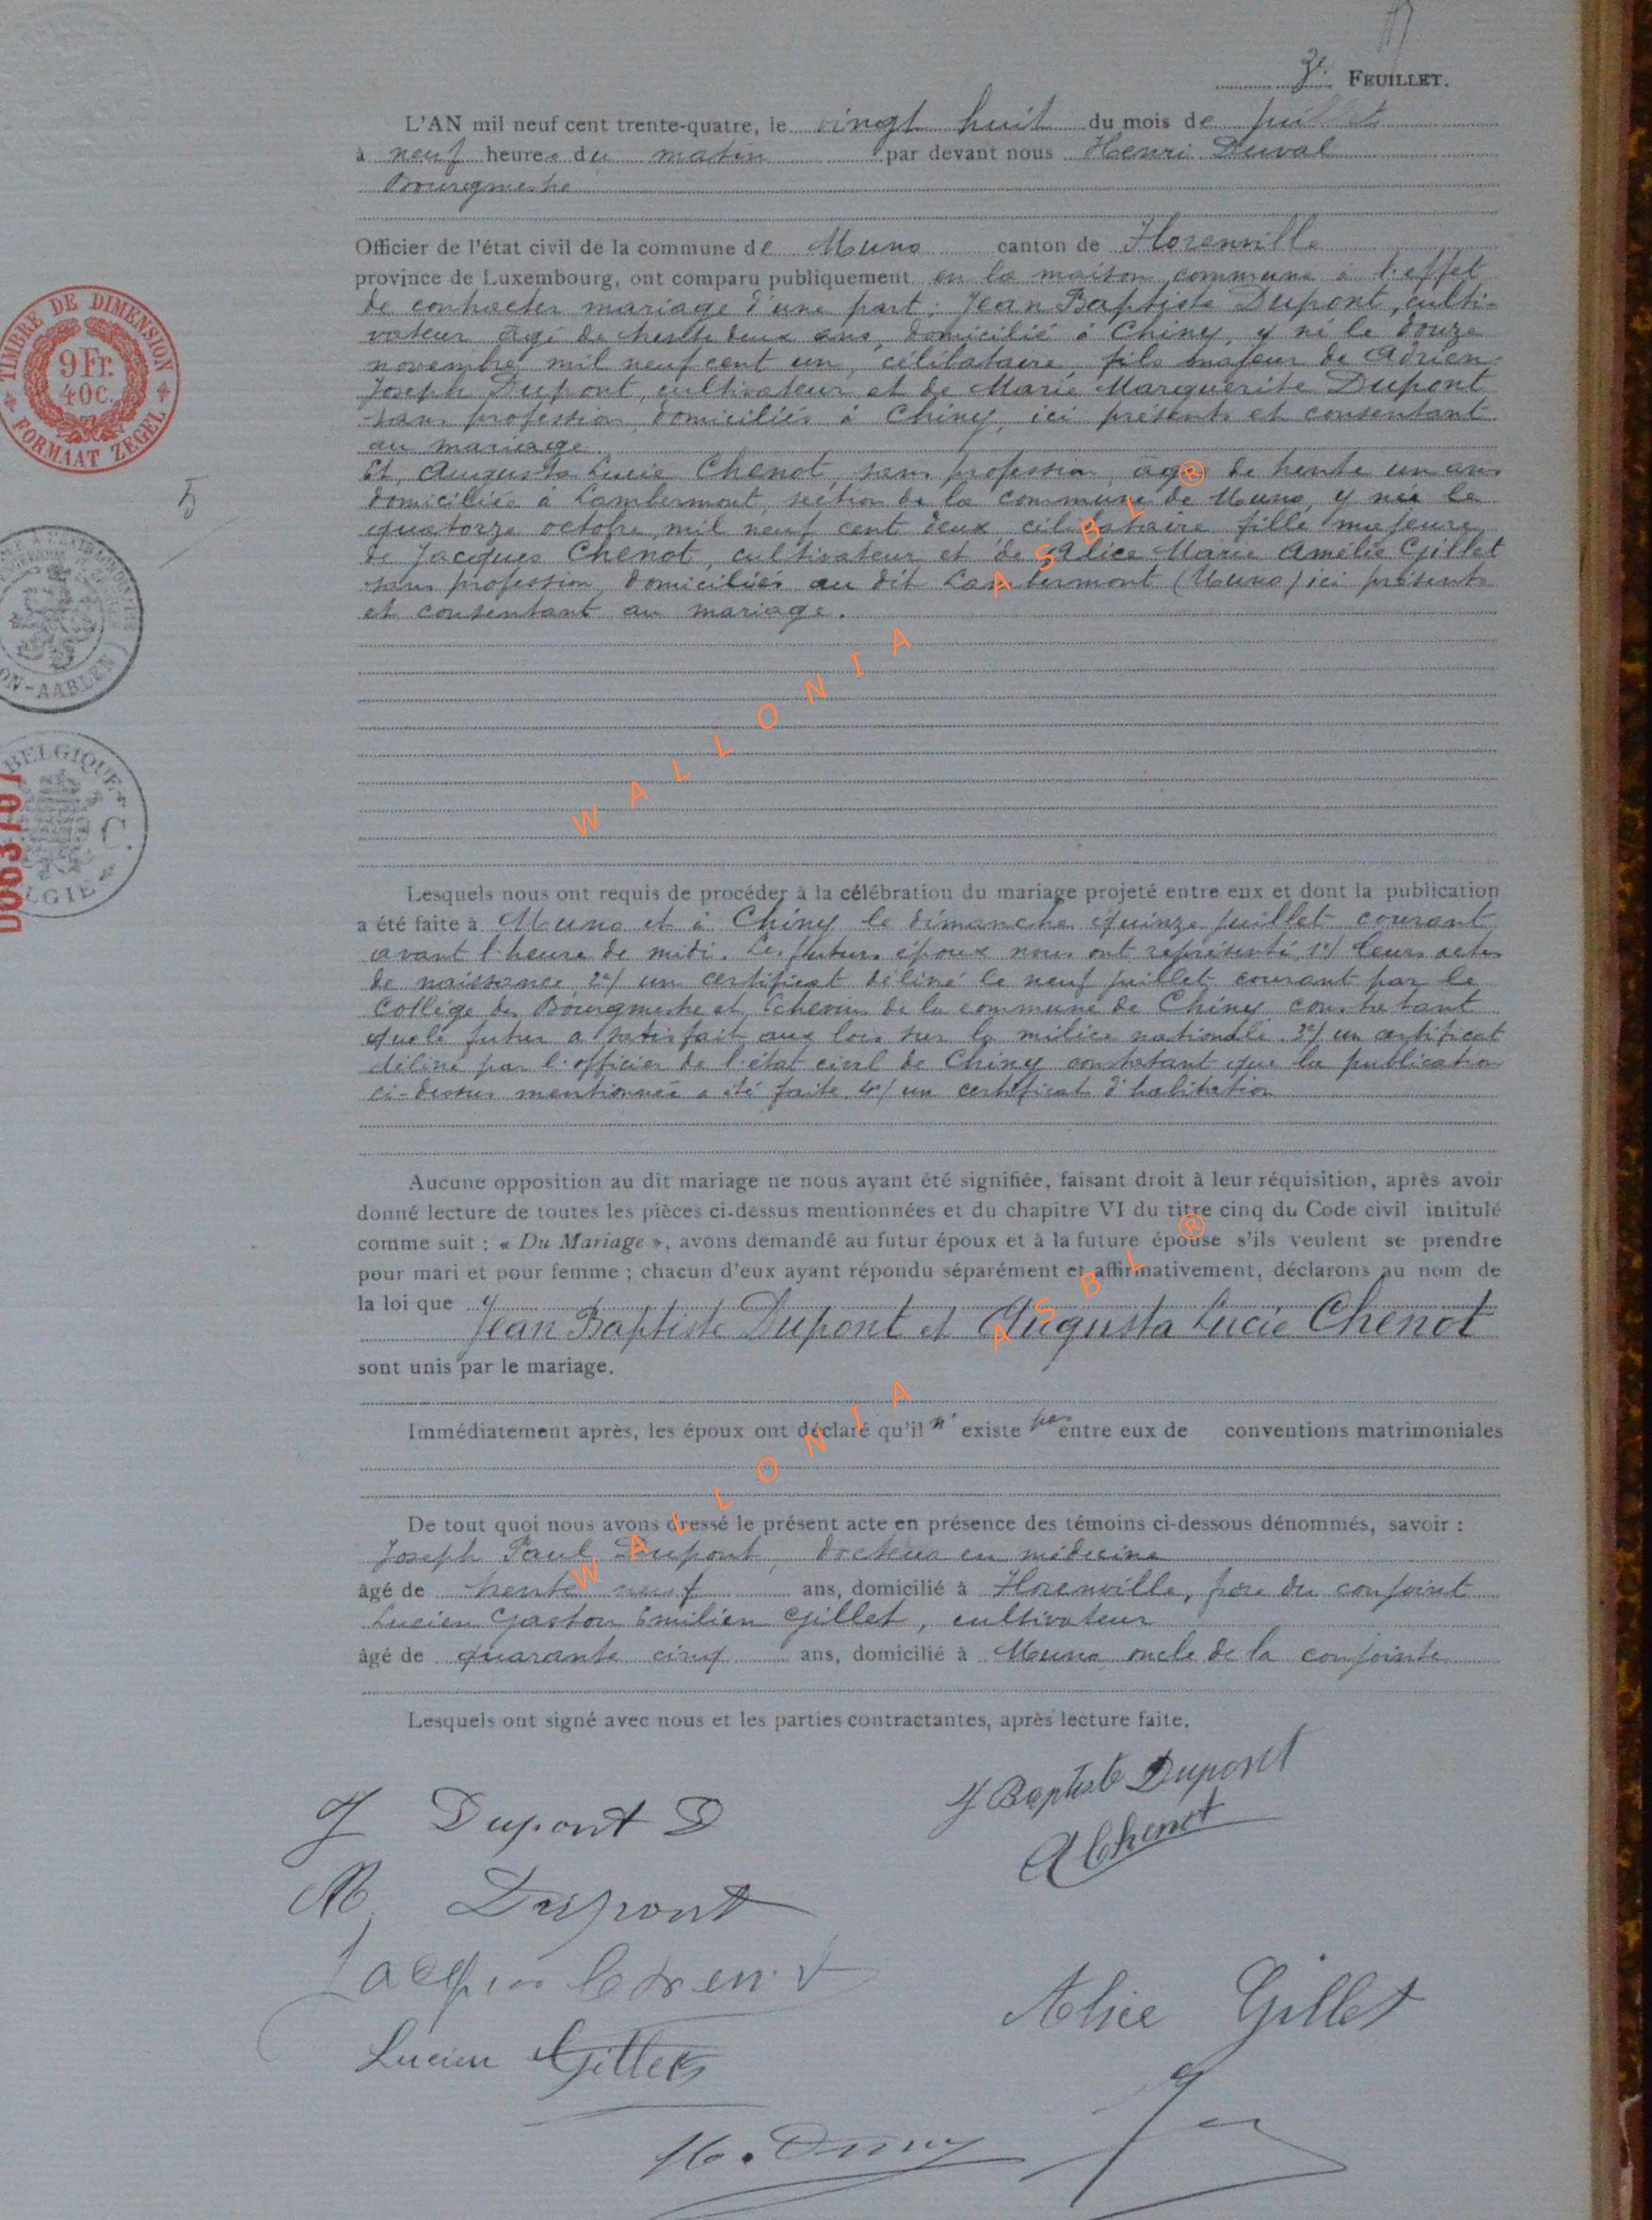 3e FEUILLET.
L'AN mil neuf cent trente-quatre, le vingt huit du mois de juillet
à neuf heures du matin par devant nous Henri Duval
Bourgmestre
Officier de l'état civil de la commune de Muno canton de Florenville
province de Luxembourg, ont comparu publiquement en la maison commune à l'effet
de contracter mariage d'une part: Jean Baptiste Dupont, culti-
vateur âgé de trente deux ans, domicilié à Chiny, y né le douze
novembre mil neuf cent un, célibataire, fils majeur de Adrien
Joseph Dupont, cultivateur et de Marie Marguerite Dupont
sans profession, domiciliés à Chiny, ici présents et consentant
au mariage.
Et, Augusta Lucie Chenot, sans profession, âgée de trente un ans
domiciliée à Lambermont, section de la commune de Muno, y née le
quatorze octobre mil neuf cent deux célibataire fille majeure
de Jacques Chenot, cultivateur et de Alice Marie Amélie Gillet
sans profession, domiciliés au dit Lambermont (Muno) ici présents
et consentant au mariage.
WALLONIA ASBL ®
Lesquels nous ont requis de procéder à la célébration du mariage projeté entre eux et dont la publication
a été faite à Muno et à Chiny le dimanche quinze juillet courant
avant l'heure de midi. Les futurs époux nous ont représenté 1°/ leurs actes
de naissance 2°/ un certificat délivré le neuf juillet courant par le
Collège des Bourgmestre et Echevins de la commune de Chiny constatant
que le futur a satisfait aux lois sur la milice nationale. 3°/ un certificat
délivré par l'officier de l'état civil de Chiny constatant que la publication
ci-dessus mentionnée a été faite. 4°/ un certificat d'habitation
Aucune opposition au dit mariage ne nous ayant été signifiée, faisant droit à leur réquisition, après avoir
donné lecture de toutes les pièces ci-dessus mentionnées et du chapitre VI du titre cinq du Code civil intitulé
comme suit : « Du Mariage », avons demandé au futur époux et à la future épouse s'ils veulent se prendre
pour mari et pour femme ; chacun d'eux ayant répondu séparément et affirmativement, déclarons au nom de
la loi que
Jean Baptiste Dupont et Augusta Lucie Chenot
sont unis par le mariage.
Immédiatement après, les époux ont déclaré qu'il n' existe pas entre eux de conventions matrimoniales
De tout quoi nous avons dressé le présent acte en présence des témoins ci-dessous dénommés, savoir :
Joseph Paul Dupont, docteur en médecine
âgé de trente neuf ans, domicilié à Florenville, frère du conjoint
Lucien Gaston Emilien Gillet, cultivateur
âgé de quarante cinq ans, domicilié à Muno oncle de la conjointe
WALLONIA ASBL ®
Lesquels ont signé avec nous et les parties contractantes, après lecture faite.
J Baptiste Dupont
J Dupont D
A Chenot
M. Dupont
Jacques Chenot
Alice Gillet
Lucien Gillet
TIMBRE DE DIMENSION
9 Fr.
40 C.
FORMAAT ZEGEL
5
BELGIQUE